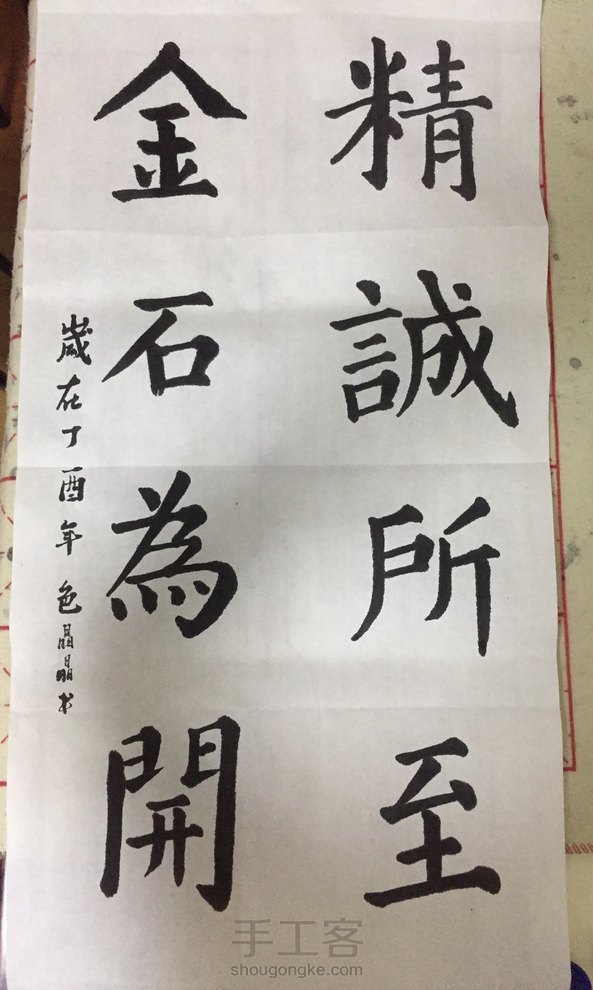 精誠所至
金石為開
歲在丁酉年 色晶晶书
手工客
shougongke.com